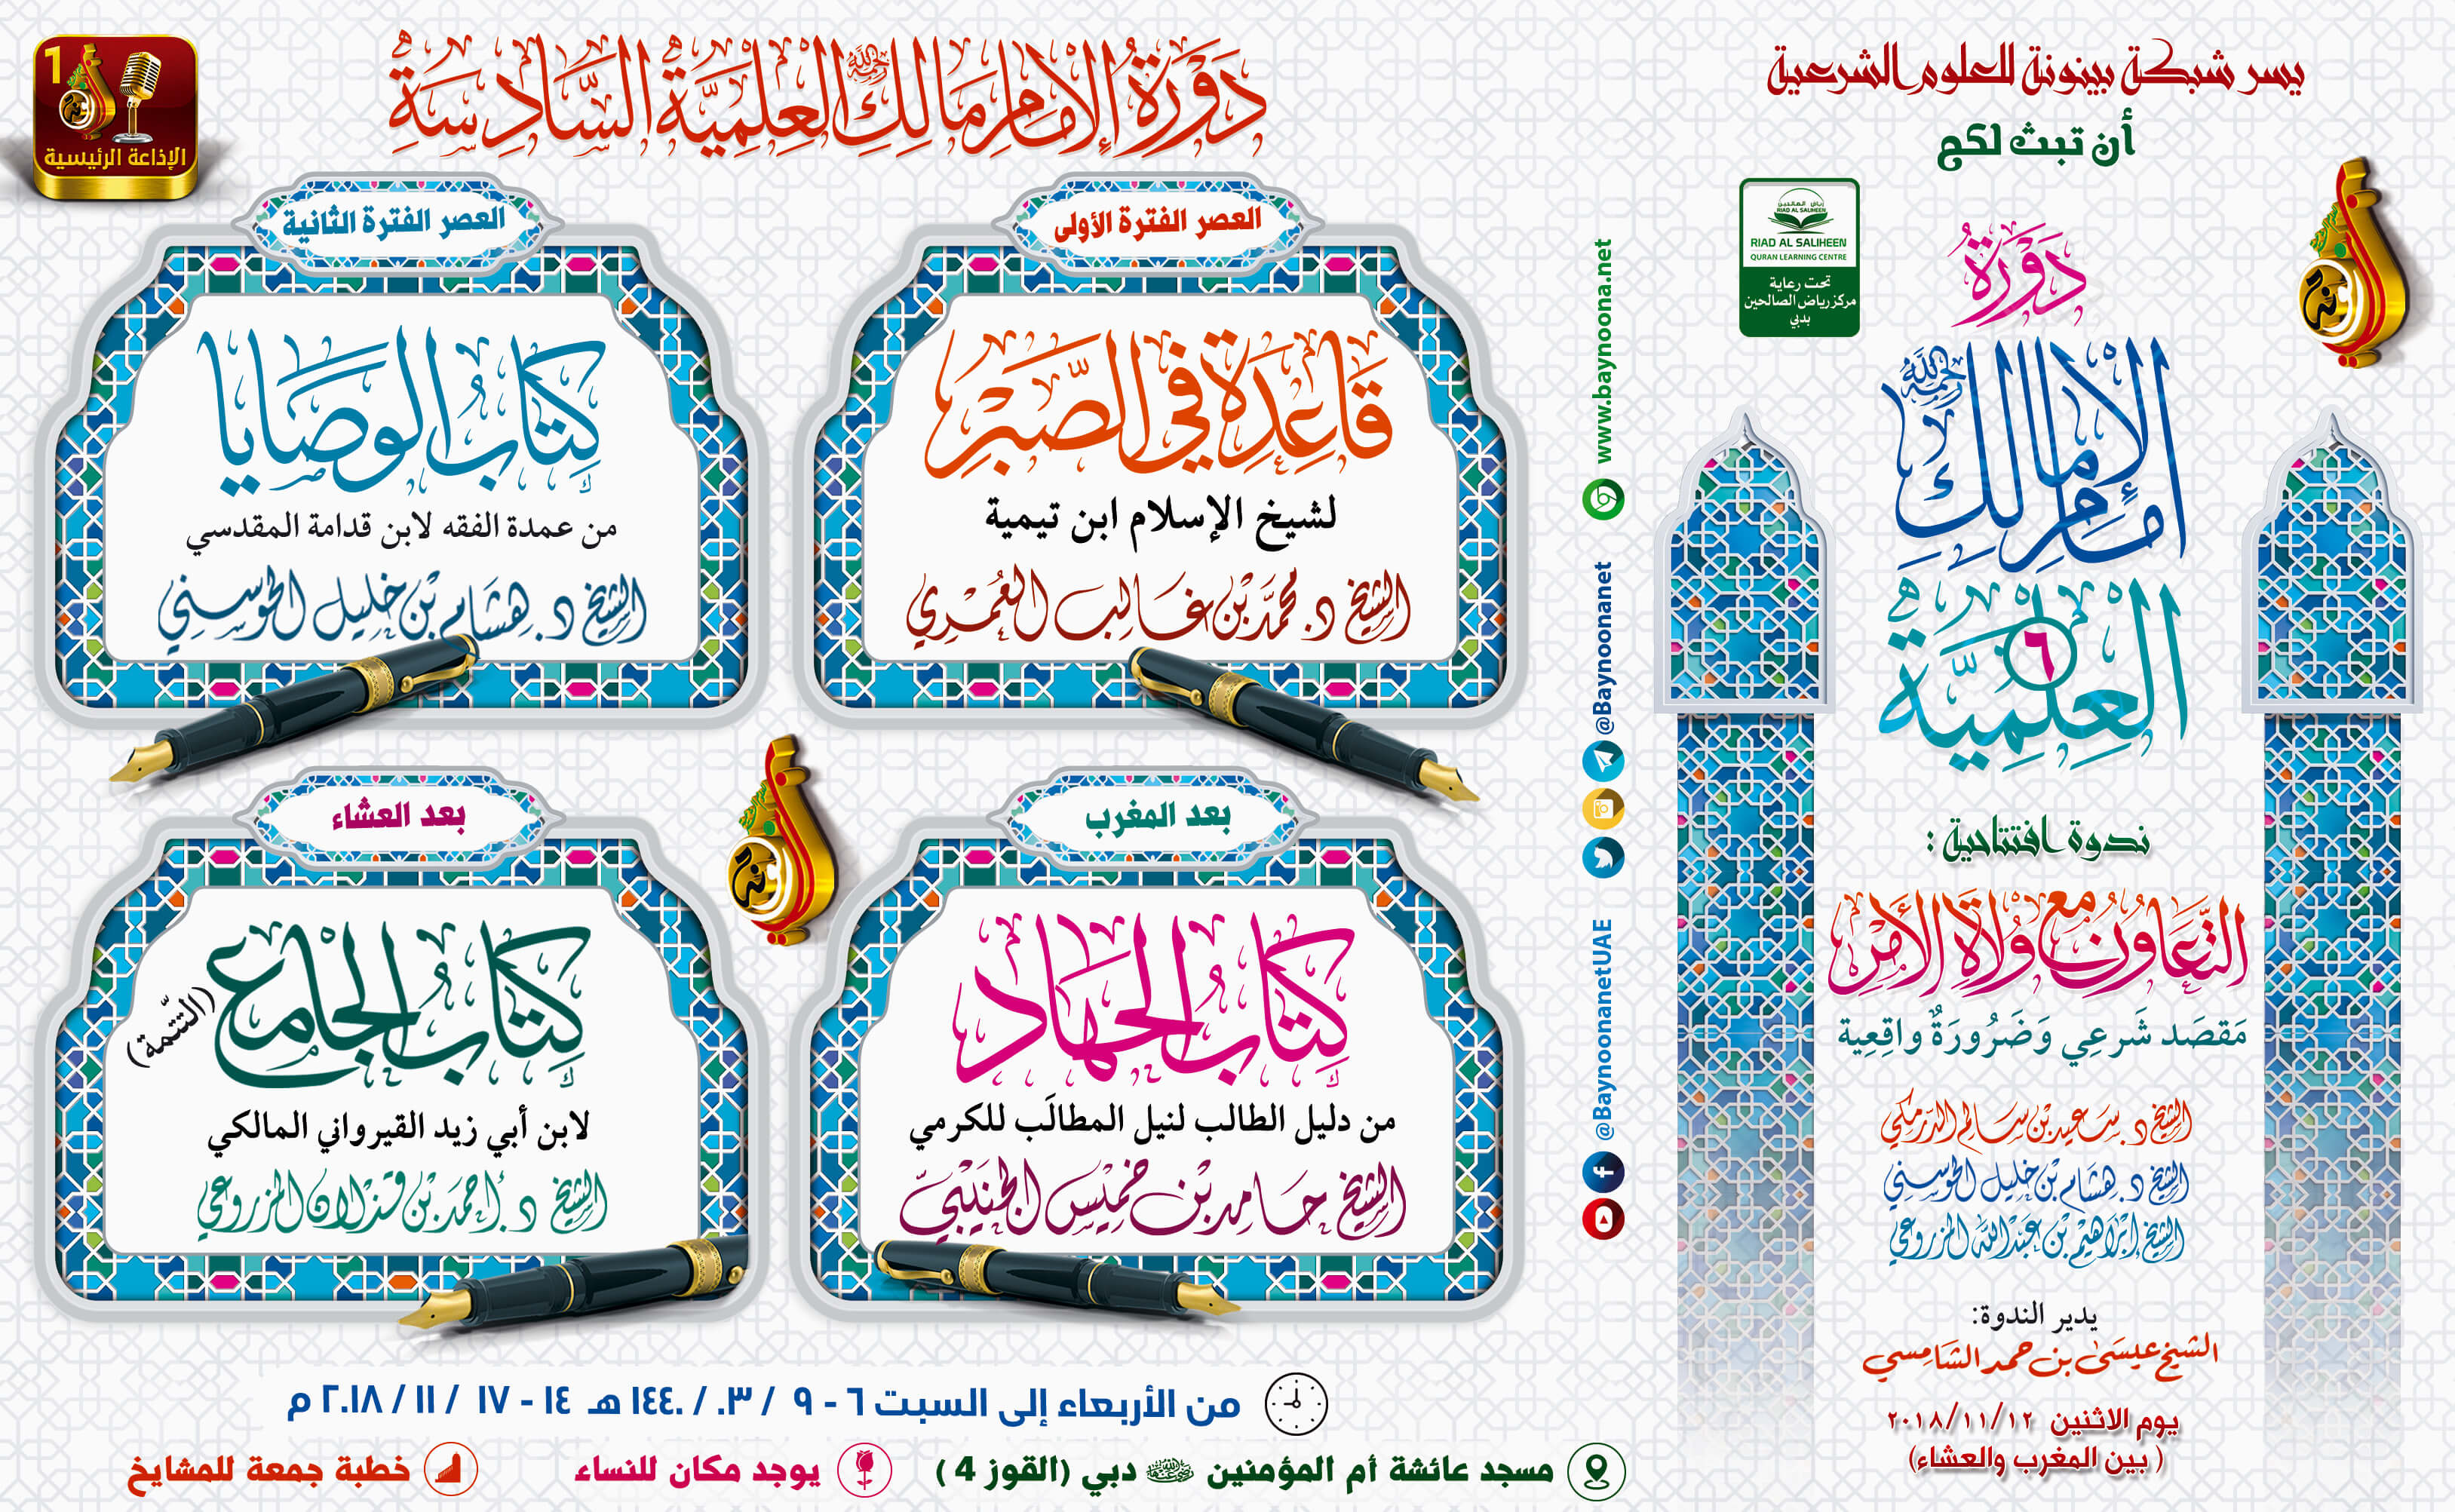 يسر شبكة بينونة للعلوم الشرعية
أن تبث لكم
رياض الصالحين
RIAD AL SALIHEEN
RIAD AL SALIHEEN
QURAN LEARNING CENTRE
تحت رعاية
مركز رياض الصالحين
بدبي
دَوْرَةُ
الإِمَامِ مَالِكٍ رحمه الله
العِلْمِيَّة
٦
ندوة افتتاحية :
التَّعَاوُن مَع وُلَاةِ الأَمْرِ
مَقصَد شَرعِي وَضَرُورَةٌ واقِعِية
الشيخ د. سَعيد بن سَالم الدرمكي
الشيخ د. هشَام بْن خليل الحوسني
الشيخ إبْرَاهيْم بْن عَبْدالله المزروعي
يدير الندوة:
الشيخ عيسَى بن حمد الشامسي
يوم الاثنين ٢٠١٨/١١/١٢
( بين المغرب والعشاء)
www.baynoona.net
@Baynoonanet
@BaynoonanetUAE
دَوْرَةُ الإِمَامِ مَالِكٍ رحمه الله العِلْمِيَّةُ السَّادِسَةُ
1
الإذاعة الرئيسية
العصر الفترة الأولى
قَاعِدَة في الصَّبْرِ
لشيخ الإسلام ابن تيمية
الشيخ د. محمَّد بْن غَالِب العُمَرِي
العصر الفترة الثانية
كِتَابُ الوصَايَا
من عمدة الفقه لابن قدامة المقدسي
الشيخ د. هشَام بْن خليل الحوسني
بعد المغرب
كِتَابُ الجهَاد
من دليل الطالب لنيل المطالَب للكرمي
الشيخ حَامد بْن خميْس الجنَيْبيّ
بعد العشاء
كِتَابُ الجَامع
(التتمة)
لابن أبي زيد القيرواني المالكي
الشيخ د. أحمَد بْن قذلان المزروعي
من الأربعاء إلى السبت ٦ - ٩ / ٠٣ / ١٤٤٠ هـ ١٤ - ١٧ / ١١ / ٢٠١٨ م
مسجد عائشة أم المؤمنين رضي الله عنها دبي (القوز 4 )
يوجد مكان للنساء
خطبة جمعة للمشايخ